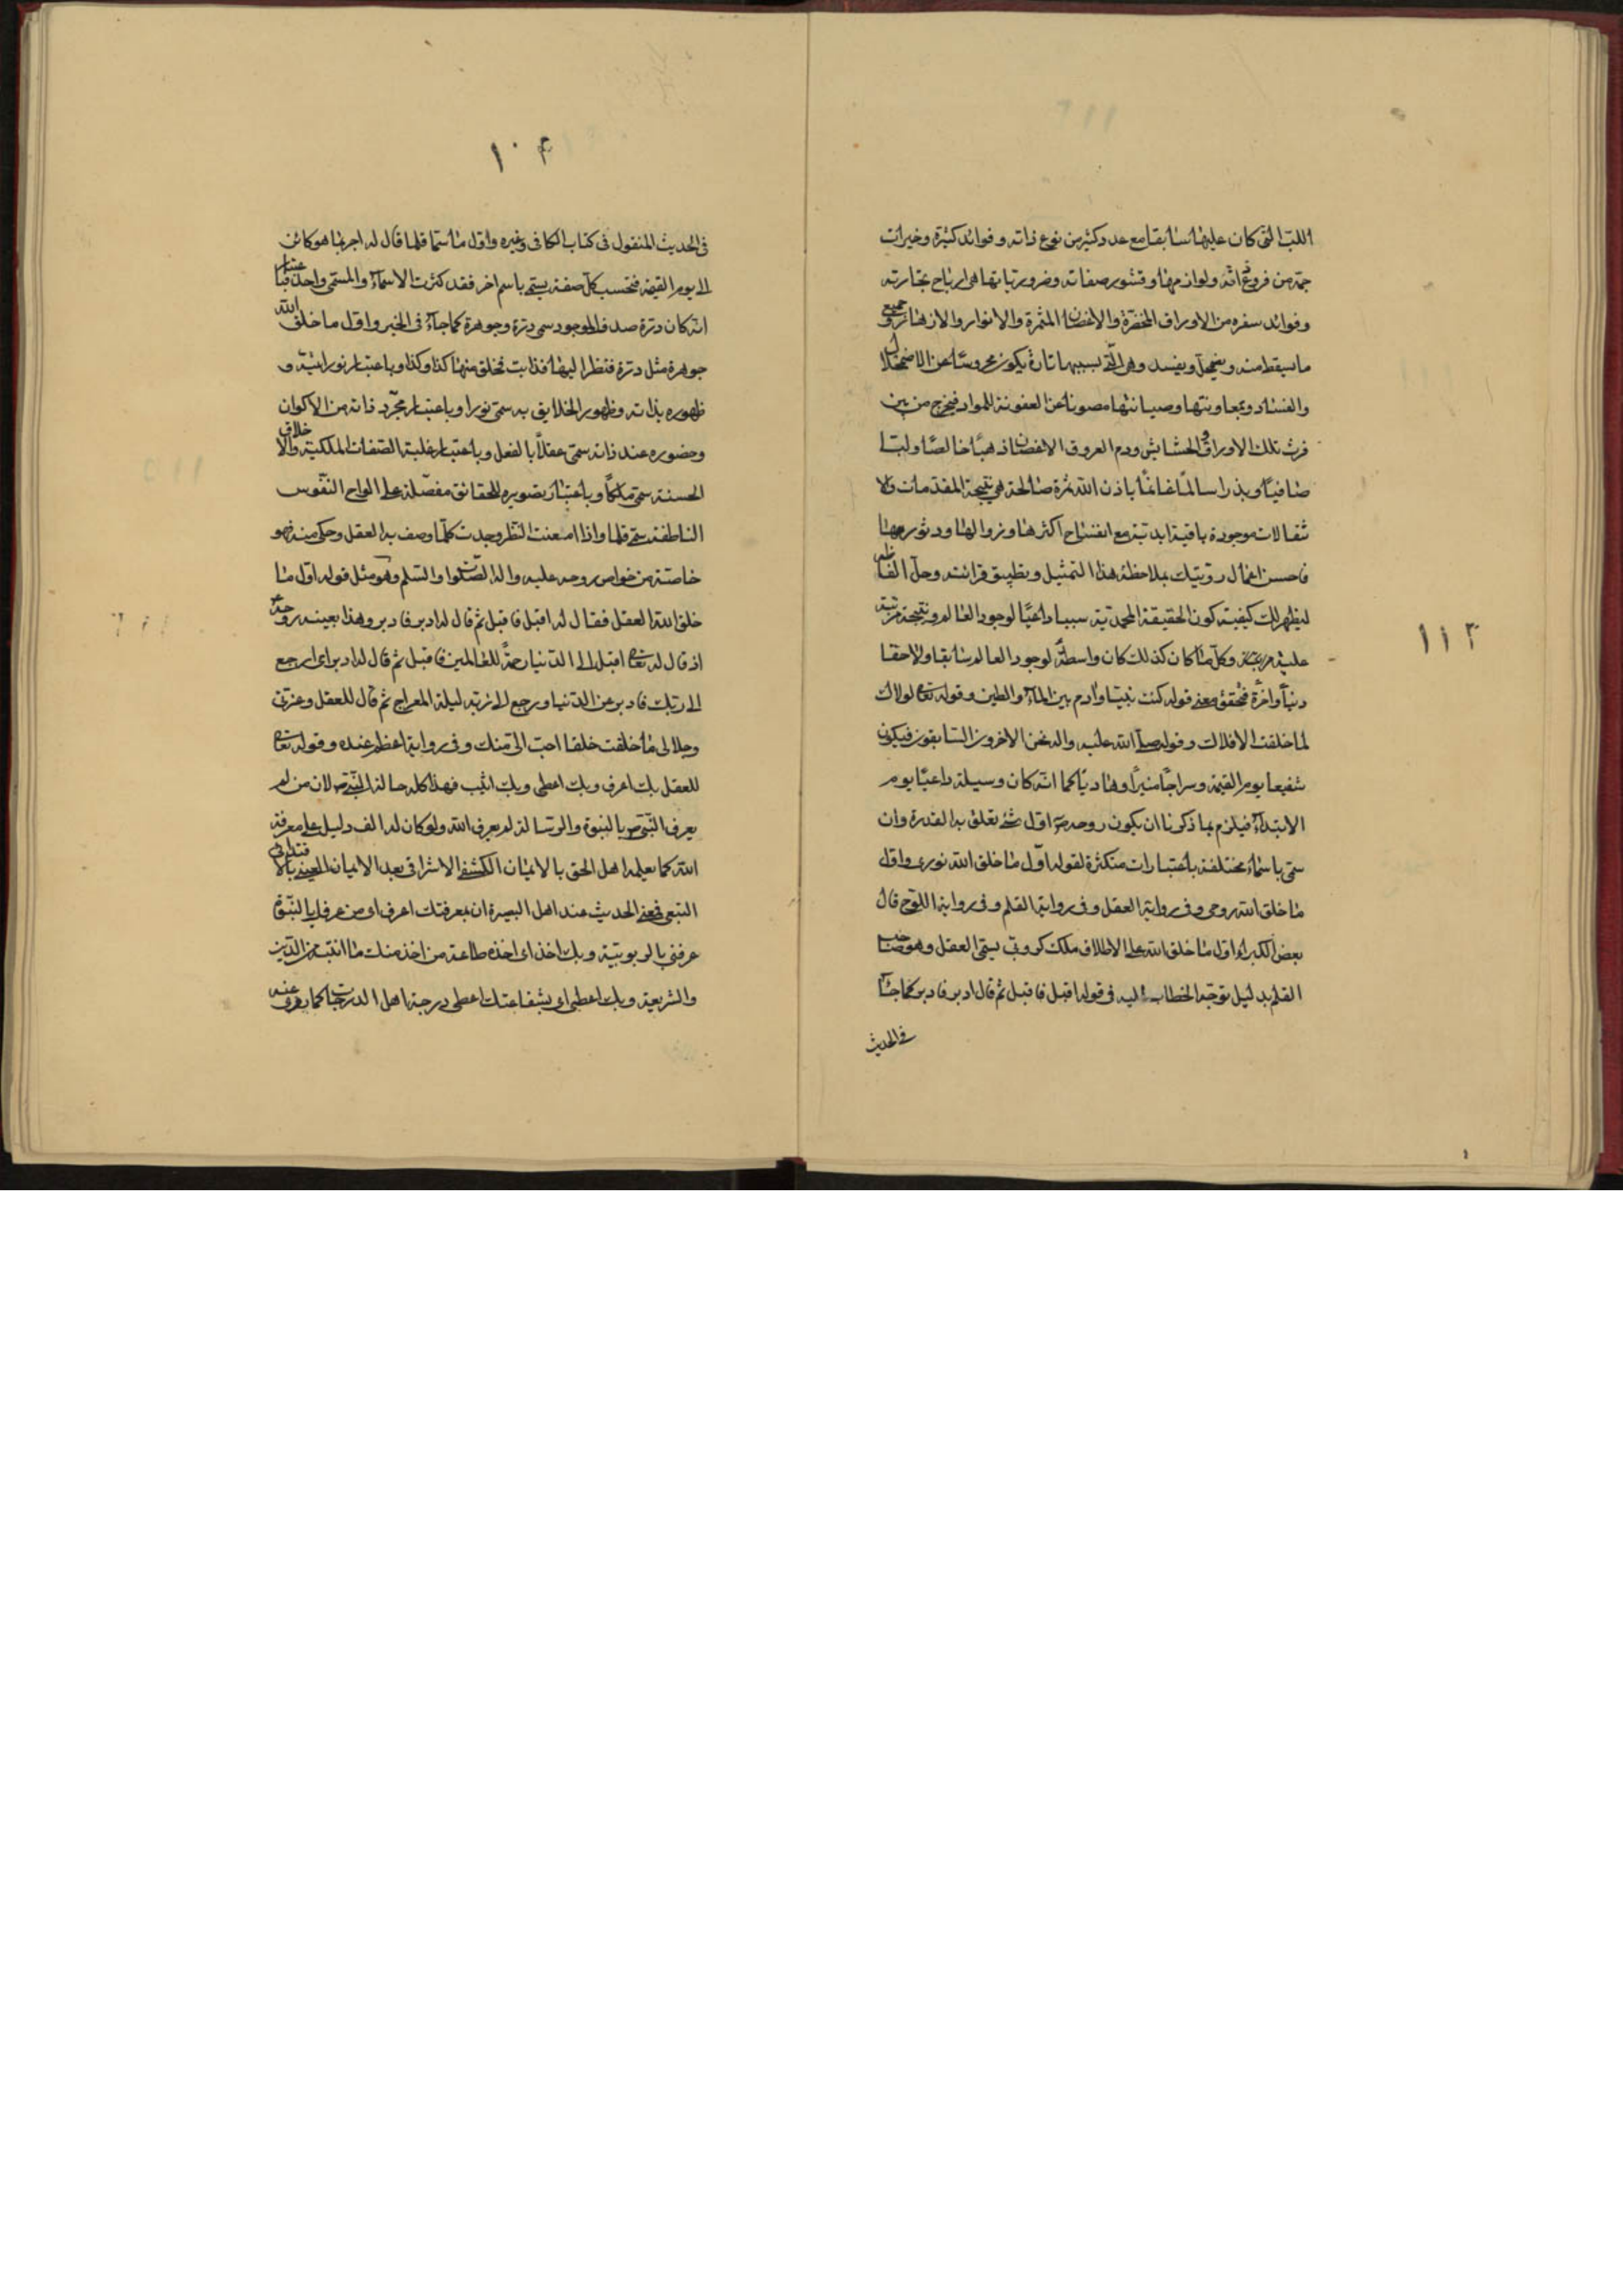 ١١٣
اللب التی كان عليها سابقا مع عدد كثير من نوع ذاته و فوائد كثيرة و خيرات
جمة من فروع ذاته ولوازمها و قشور صفاته و ضروریاتها هی ارباح تجارته
وفوائد سفره من الاوراق المخضرة والاغصان المثمرة والانوار والازهار و جميع
ما يسقط منه ويضمحل ويفسد وهی التی بسببها تارة يكون محروسا عن الاضمحلال
والفساد و بمعاونتها وصيانتها مصونا عن العفونة للمواد فيخرج من بين
فرث تلك الاوراق والحشايش ودم العروق الاغصان ذهبا خالصا ولبنا
صافيا وبذرا سالما غانما باذن الله ثمرة صالحة هی نتيجة المقدمات
انتقالات موجودة باقية ابدية مع انفساخ اكثرها وزوالها ودثورها
فاحسن اعمال رويتك بملاحظة هذا التمثيل وتطبيق قرائنه وحل الفاظه
ليظهر لك كيفية كون الحقيقة المحمدية سببا داعيا لوجود العالم و نتيجة مرتبة
عليه وكل ما كان كذلك كان واسطة لوجود العالم سابقا ولاحقا
دنيا واخرة فتحقق معنى قوله كنت نبيا وادم بين الماء والطين وقوله تعالى لولاك
لما خلقت الافلاك وقوله صلى الله عليه واله نحن الاخرون السابقون فيكون
شفيعا يوم القيمة وسراجا منيرا وهاديا كما انه كان وسيلة داعيا يوم
الابتداء فيلزم بما ذكرنا ان يكون روحه ص اول شئ تعلق به القدرة وان
سمی باسماء مختلفة باعتبارات متكثرة لقوله اول ما خلق الله نوری واول
ما خلق الله روحی وفی رواية العقل وفی رواية القلم وفی رواية اللوح قال
بعض الكبراء اول ما خلق الله على الاطلاق ملك كروبی يسمى العقل وهو صاحب
القلم بدليل توجه الخطاب اليه فی قوله اقبل فاقبل ثم قال ادبر فادبر كما جاء
فی الحديث
١٠٤
فی الحديث المنقول فی كتاب الكافی وغيره واول ما سمّا قلما قال له اجر بما هو كائن
الى يوم القيمة فبحسب كل صفة يسمى باسم اخر فقد كثرت الاسماء والمسمى واحد فباعتبار
انه كان درة صدف الموجود سمی درة وجوهرة كما جاء فی الخبر واول ما خلق الله
جوهرة مثل درة فنظر اليها فذابت فخلق منها كذا وكذا وباعتبار نورانيته و
ظهوره بذاته وظهور الخلايق به سمی نورا وباعتبار مجرد ذاته من الاكوان
وحضوره عند ذاته سمی عقلا بالفعل وباعتبار غلبة الصفات الملكية والاخلاق
الحسنة سمی ملكا وباعتبار تصويره للحقائق مفصلة على الواح النفوس
الناطقة سمی قلما واذا امعنت النظر وجدت كلما وصف به العقل وحكی منه فهو
خاصة من خواص روحه عليه واله الصلوة والسلم وهو مثل قوله اول ما
خلق الله العقل فقال له اقبل فاقبل ثم قال له ادبر فادبر وهذا بعينه روحه ص
اذ قال له تعالى اقبل الى الدنيا رحمة للعالمين فاقبل ثم قال له ادبر ای ارجع
الى ربك فادبر عن الدنيا ورجع الى ربه ليلة المعراج ثم قال للعقل وعزتی
وجلالی ما خلقت خلقا احب الی منك وفی رواية اعظم عنده وقوله تعالى
للعقل بك اعرف وبك اعطی وبك اثيب فهذا كله حالة النبی ص لان من لم
يعرف النبی ص بالنبوة والرسالة لم يعرف الله ولو كان له الف دليل على معرفة
الله كما يعلمه اهل الحق بالايمان الكشفی الاشراقی بعد الايمان
التبعی فمعنى الحديث عند اهل البصيرة ان بمعرفتك اعرف ای من عرفك بالنبوة
عرفنی بالربوبية وبك اخذ ای اخذ طاعة من اخذ منك ما اتيته من الدين
والشريعة وبك اعطی ای بشفاعتك اعطی درجة اهل الدرجات كما روی عنه